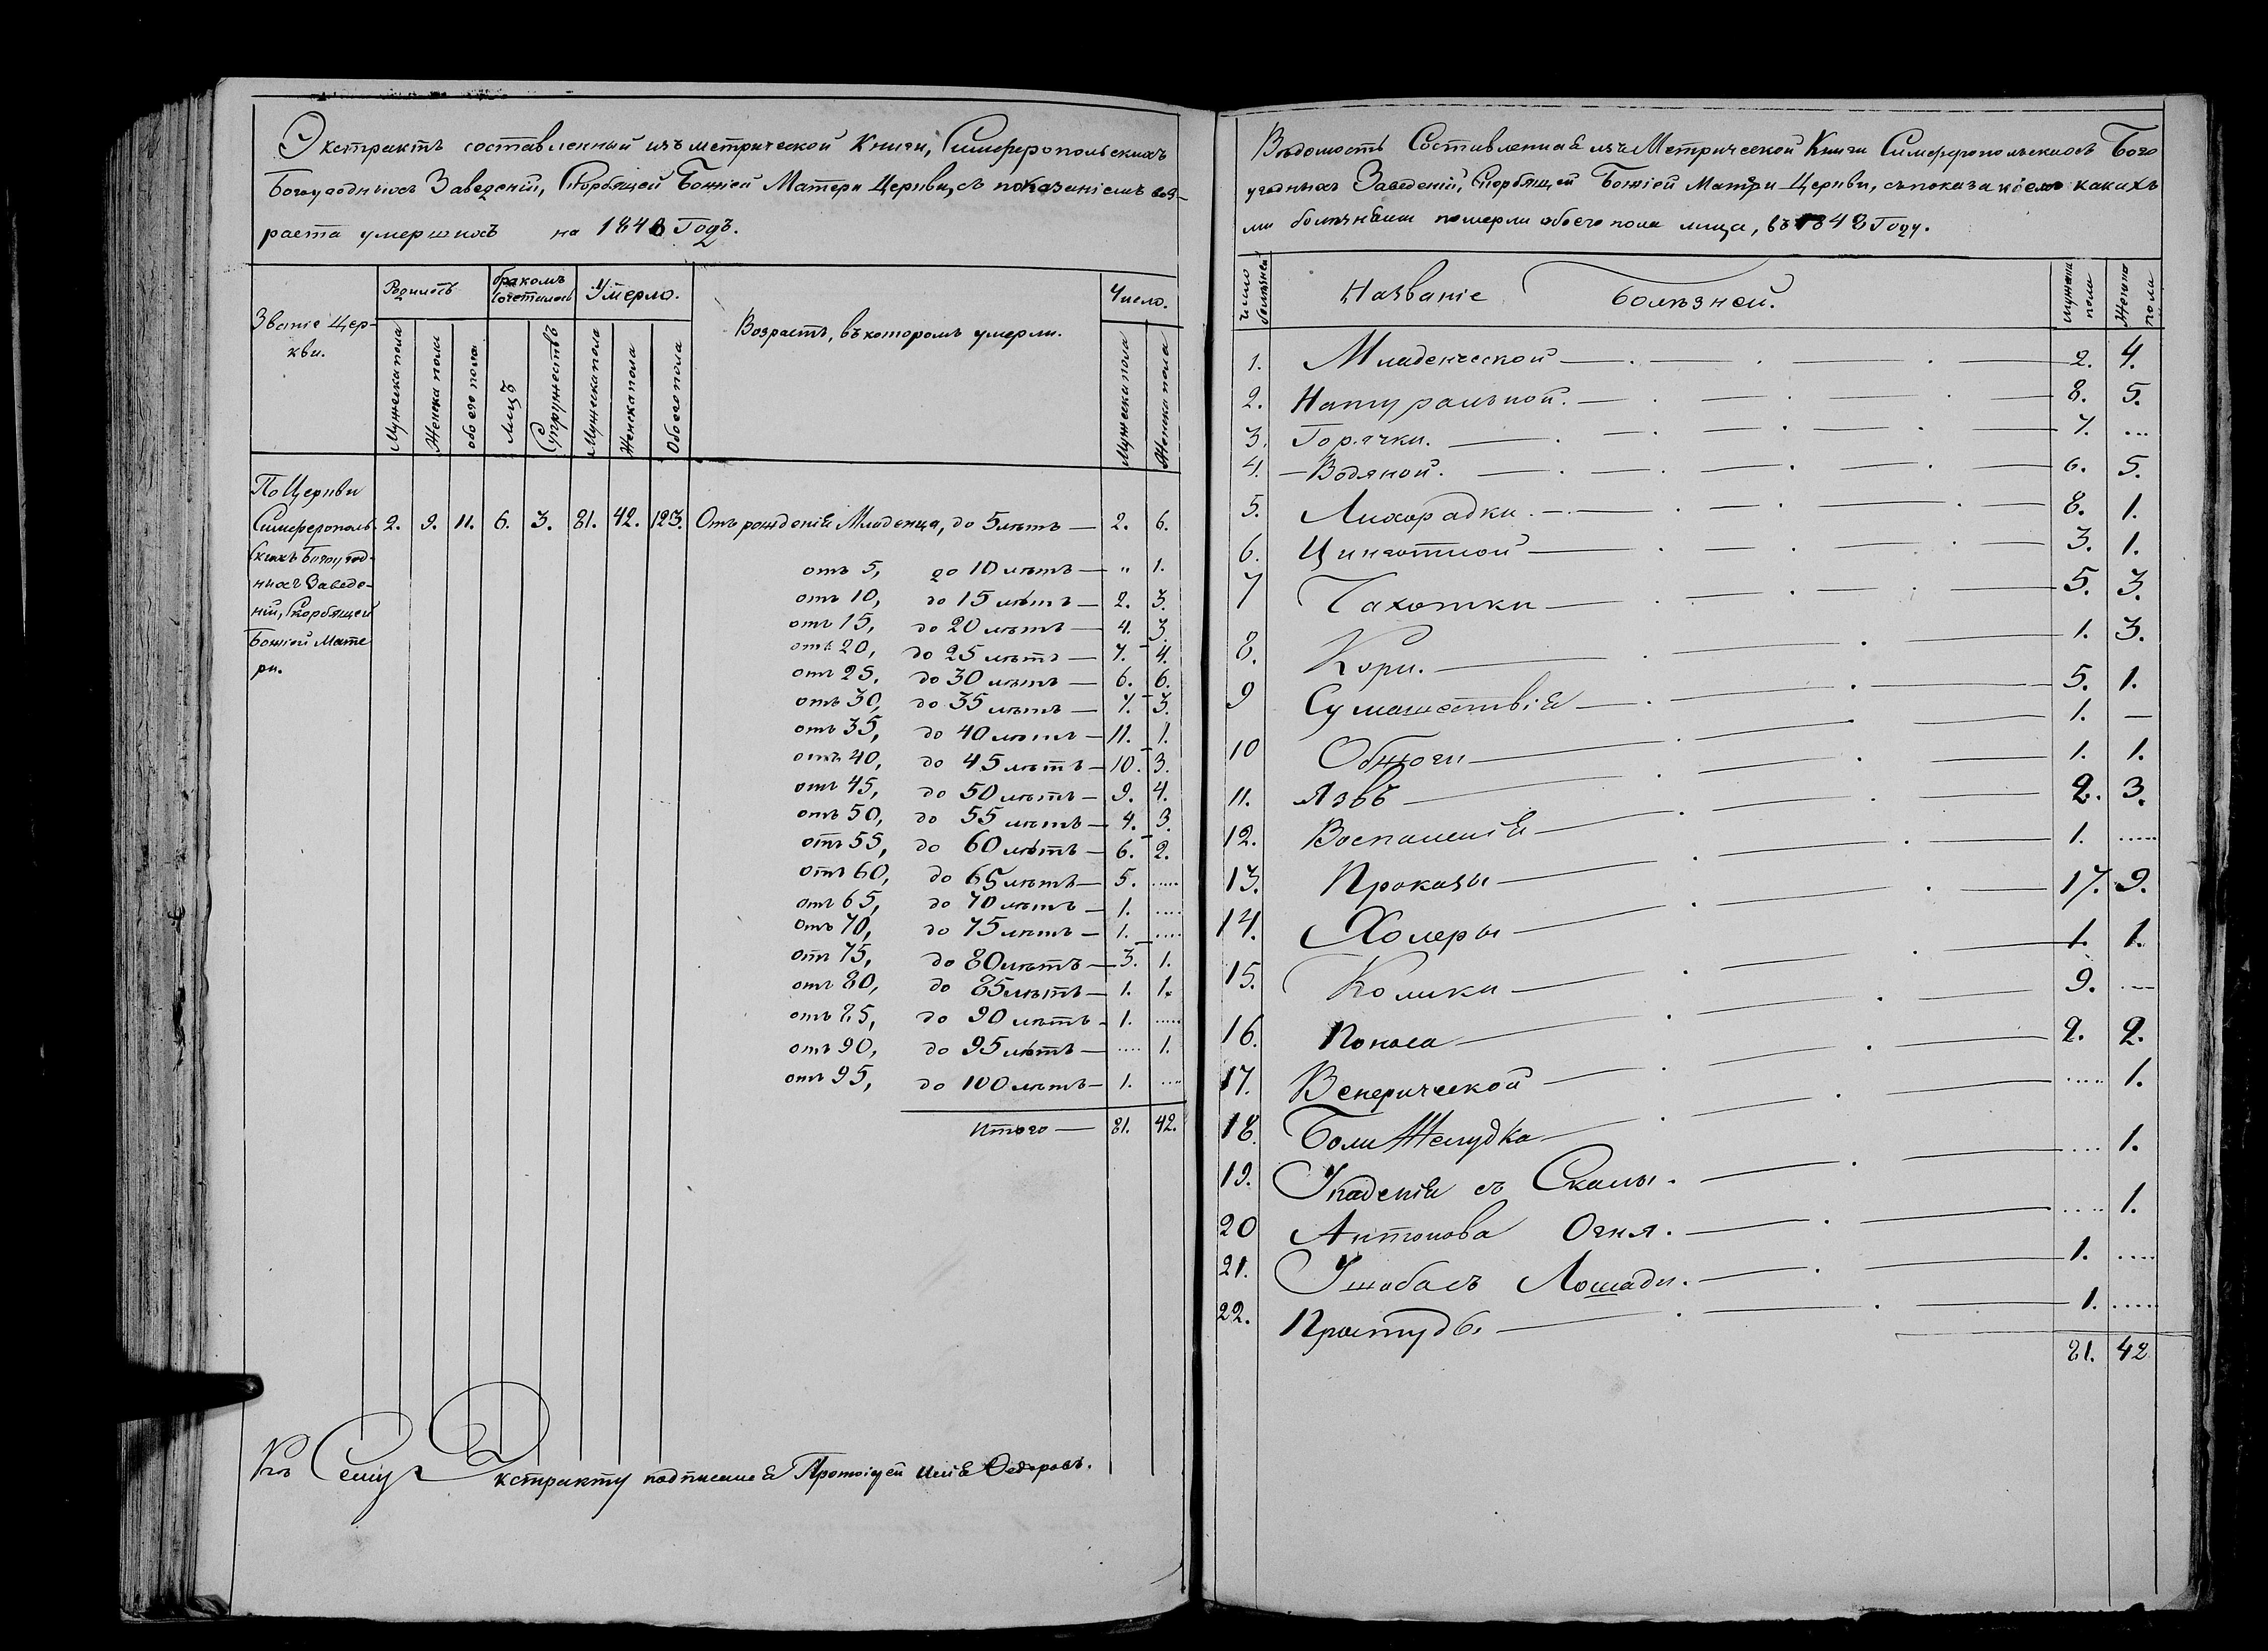 Экстрактъ составленный изъ метрической Книги, Симферопольскихъ
Богоугодныхъ Заведеній, Скорбящей Божіей Матери Церкви, съ показаніемъ воз-
раста умершихъ на 1848 Годъ.
Званіе Цер-
кви.
Родилось
бракомъ
Сочеталось
Умерло.
Возрастъ, въ которомъ умерли.
Число.
Мужеска пола
Женска пола
обоего пола
лицъ
Супружествъ
Мужеска пола
Женска пола
Обоего пола
Мужеска пола
Женска пола
По Церкви
Симферополь- 2. 9. 11. 6. 3. 81. 42. 123. Отъ рожденія Младенца, до 5 лѣтъ — 2. 6.
скихъ Богоугод-
ныхъ Заведе-
ній, Скорбящей
Божіей Мате
ри.
отъ 5, до 10 лѣтъ — „ 1.
отъ 10, до 15 лѣтъ — 2. 3.
отъ 15, до 20 лѣтъ — 4. 3.
отъ 20, до 25 лѣтъ — 7. 4.
отъ 25, до 30 лѣтъ — 6. 6.
отъ 30, до 35 лѣтъ — 7. 3.
отъ 35, до 40 лѣтъ — 11. 1.
отъ 40, до 45 лѣтъ — 10. 3.
отъ 45, до 50 лѣтъ — 9. 4.
отъ 50, до 55 лѣтъ — 4. 3.
отъ 55, до 60 лѣтъ — 6. 2.
отъ 60, до 65 лѣтъ — 5. .....
отъ 65, до 70 лѣтъ — 1. ....
отъ 70, до 75 лѣтъ — 1. ....
отъ 75, до 80 лѣтъ — 3. 1.
отъ 80, до 85 лѣтъ — 1. 1.
отъ 85, до 90 лѣтъ — 1. .....
отъ 90, до 95 лѣтъ — .... 1.
отъ 95, до 100 лѣтъ — 1. ....
Итого — 81. 42.
Къ Сему Экстракту подписался Протоіерей Федоровъ.
Вѣдомость Составленная изъ Метрической Книги Симферопольскихъ Бого
угодныхъ Заведеній, Скорбящей Божіей Матери Церкви, съ показаніемъ какихъ
ми болѣзньми померли обоего пола лица, въ 1848 Году.
число болѣзней
Названіе Болѣзней.
Мужеска пола
Женска пола
1. Младенческой — 2. 4.
2. Натуральной. — 8. 5.
3. Горячки. — 7. ...
4. Водяной. — 6. 5.
5. Лихорадки. — 8. 1.
6. Цинготной — 3. 1.
7 Чахотки — 5. 3.
8. Кори. — 1. 3.
9 Сумашествія — 5. 1.
10 Обжоги — 1. —
11. Язвъ — 1. 1.
12. Воспаленія — 2. 3.
13. Проказы — 1. .....
14. Холеры — 17. 9.
15. Колики — 1. 1.
16. Поноса — 9. ....
17. Венерической — 2. 2.
18. Боли Желудка — .... 1.
19. Упаденія съ Скалы. — .... 1.
20 Антонова Огня. — .... 1.
21. Лошади. — 1. ....
22. Простуды — 1. .....
81. 42